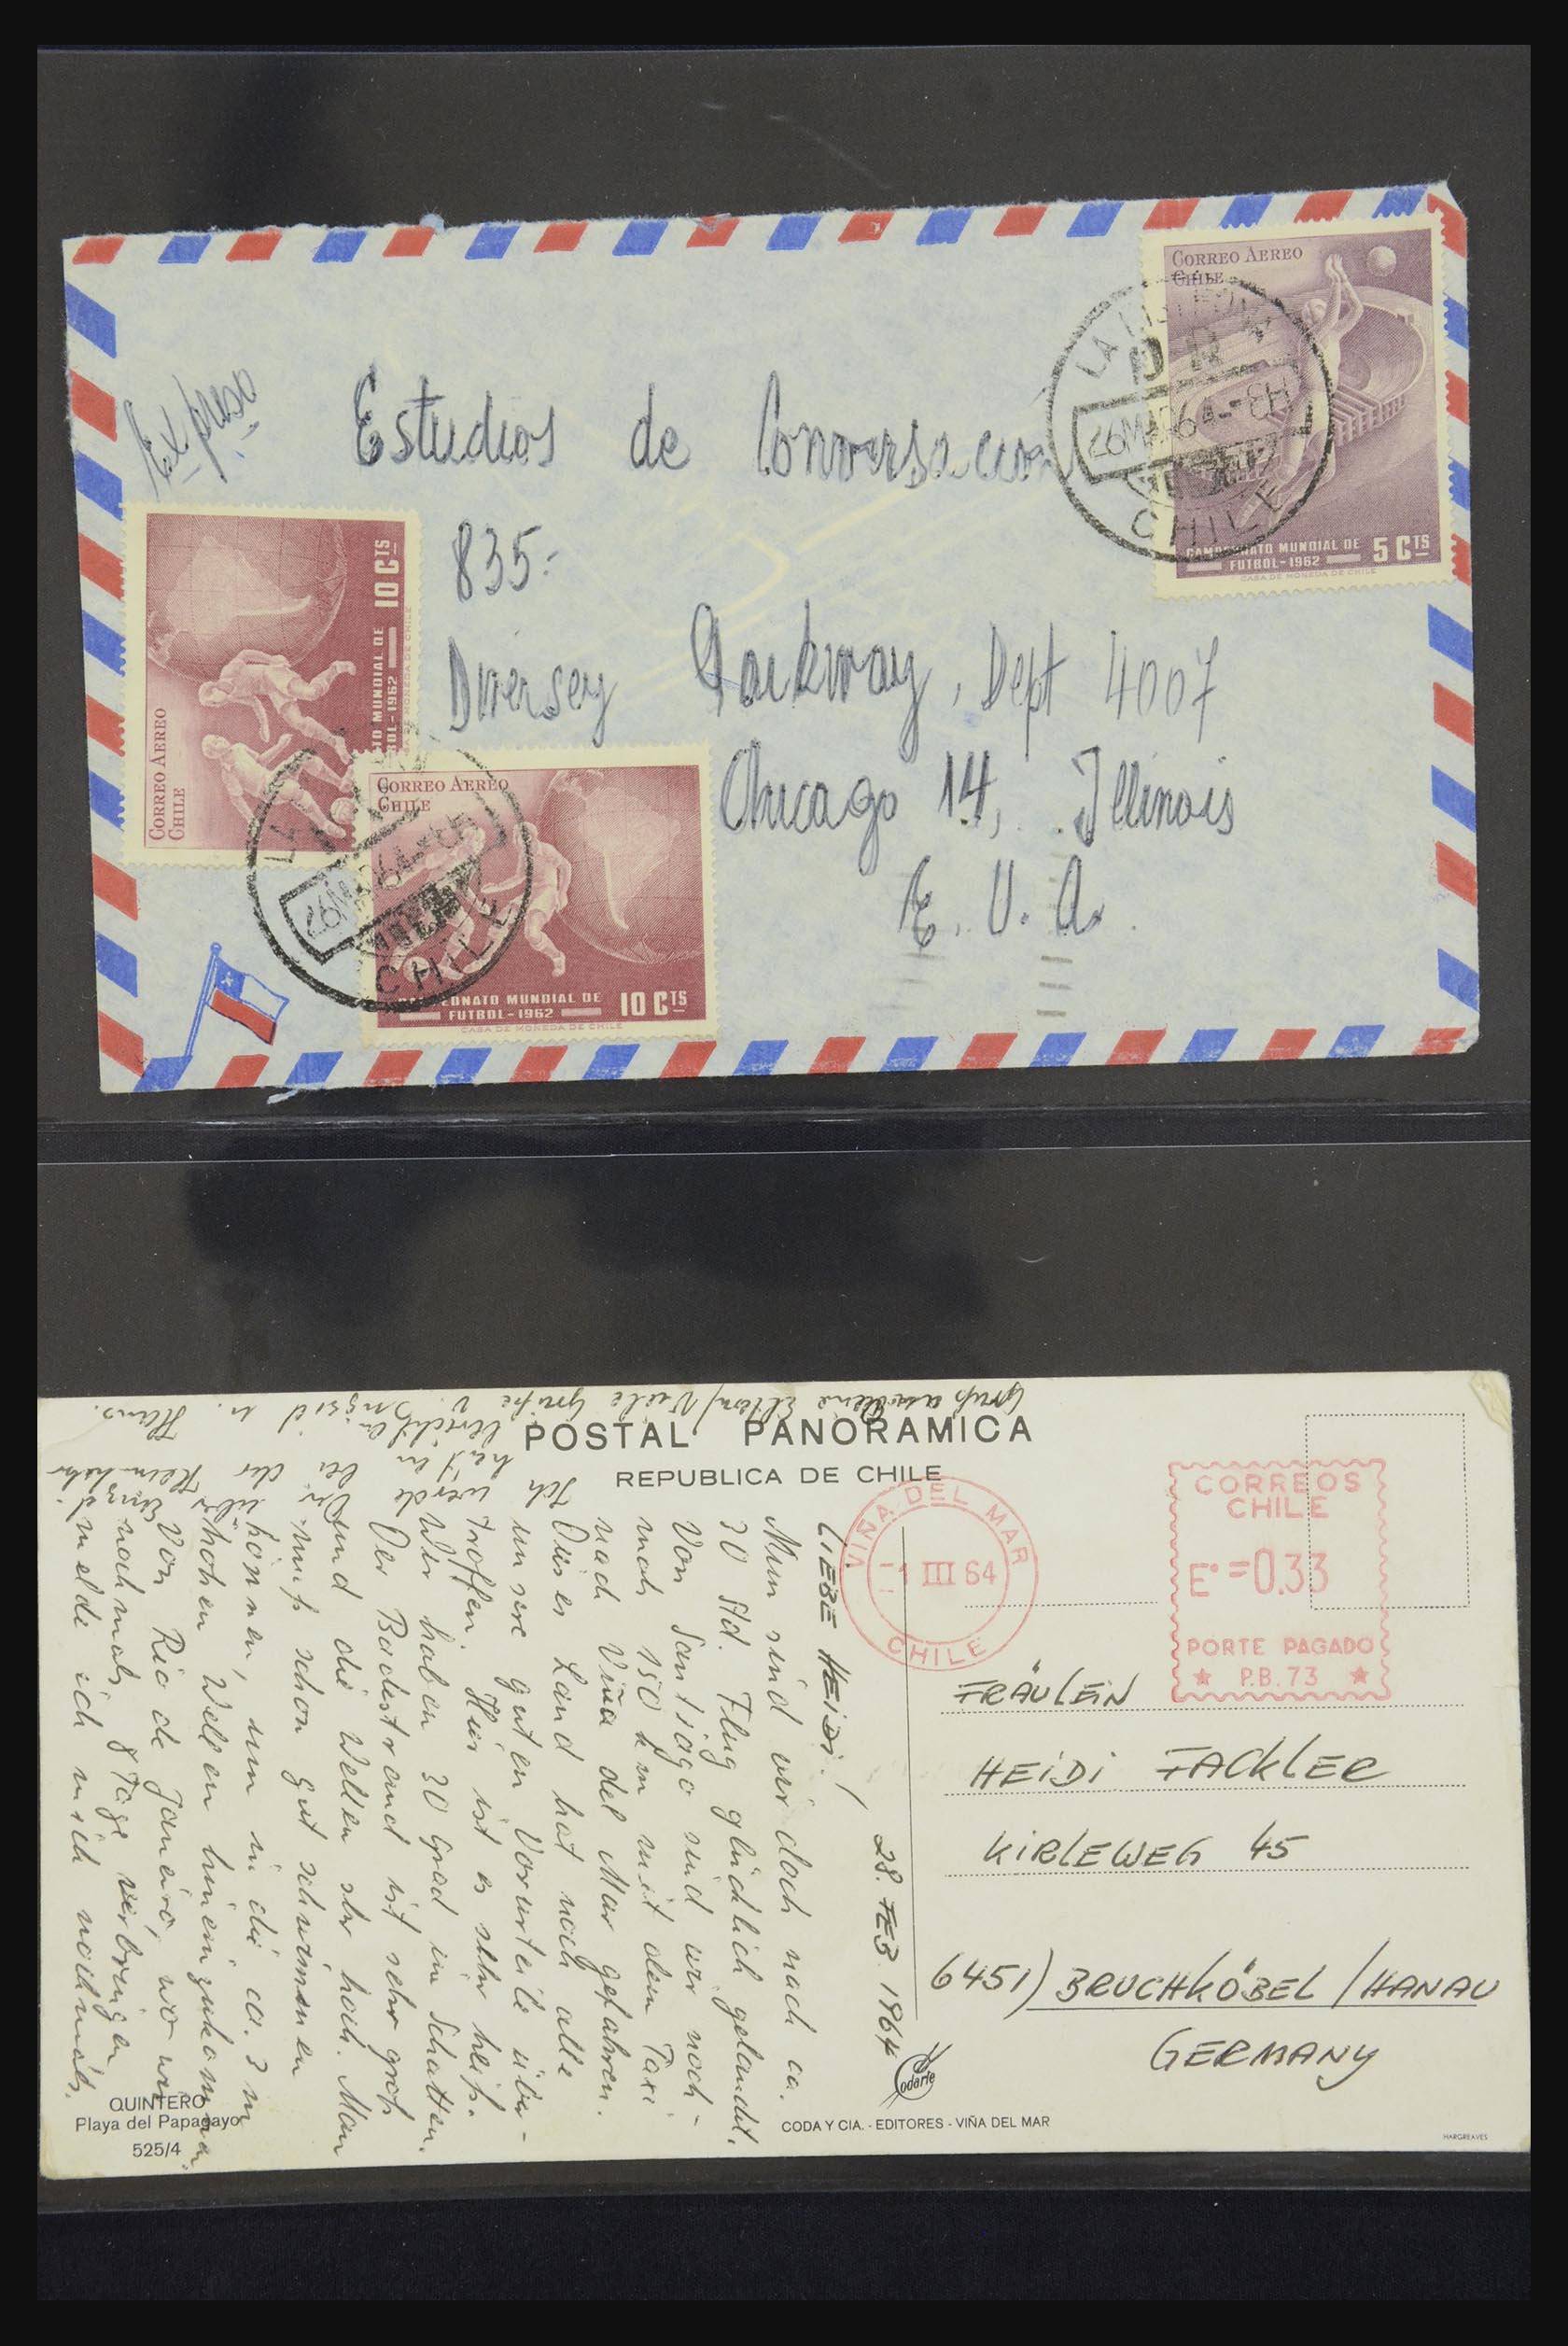 Impreso
Estudios de Conversacion
835-
Diversey Parkway, Dept 4007
Chicago 14, Illinois
E. U. A.
CORREO AEREO
CHILE
CAMPEONATO MUNDIAL DE
FUTBOL-1962
5 CTS
CASA DE MONEDA DE CHILE
CHILE
CORREO AEREO
CHILE
MUNDIAL DE
1962
10 CTS
MONEDA DE CHILE
CORREO AEREO
CHILE
MUNDIAL DE
FUTBOL-1962
10 CTS
CASA DE MONEDA DE CHILE
CHILE
POSTAL PANORAMICA
REPUBLICA DE CHILE
VIÑA DEL MAR
1 III 64
CHILE
CORREOS
CHILE
Eº=0.33
PORTE PAGADO
P.B. 73
28. FEB. 1964
LIEBE HEIDI!
Nun sind wir doch nach ca.
30 Std. Flug glücklich gelandet.
Von Santjago sind wir noch-
mals 150 km mit dem Taxi
nach Viña del Mar gefahren.
Dieses Land hat noch alle
unsere guten Vorurteile über-
troffen. Hier ist es sehr heiß.
Wir haben 30 Grad im Schatten.
Der Badestrand ist sehr groß
und die Wellen sehr hoch. Man
muß schon gut schwimmen
können, um in die ca. 3 m
hohen Wellen hineinzukommen.
Von Rio de Janeiro, wo wir
nochmals 8 Tage verbringen
melde ich mich nochmals.
Ich werde Dir bei der
Gruß an Deine Eltern / Viele Grüße
Ingrid u. Hans.
FRÄULEIN
HEIDI FACKLER
KIRLEWEG 45
6451) BRUCHKÖBEL / HANAU
GERMANY
QUINTERO
Playa del Papagayo
525/4
Codarte
CODA Y CIA. - EDITORES - VIÑA DEL MAR
HARGREAVES